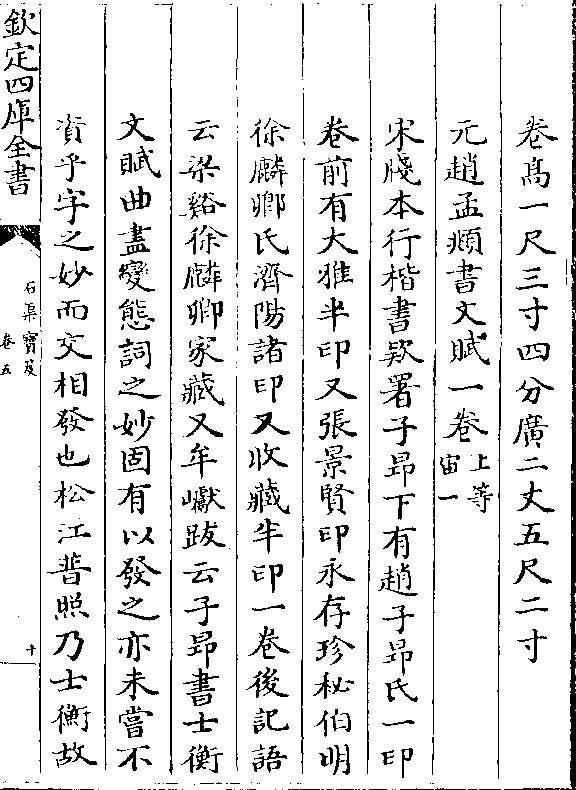 卷高一尺三寸四分廣二丈五尺二寸
元趙孟頫書文賦一卷上等宙一
宋牋本行楷書欵署子昻下有趙子昻氏一印
卷前有大雅半印又張景賢印永存珍秘伯明
徐麟卿氏濟陽諸印又收藏半印一卷後記語
云梁谿徐麟卿家藏又牟巘跋云子昻書士衡
文賦曲盡變態詞之妙固有以發之亦未嘗不
資乎字之妙而交相發也松江普照乃士衡故
欽定四庫全書
石渠寳笈
卷五
十